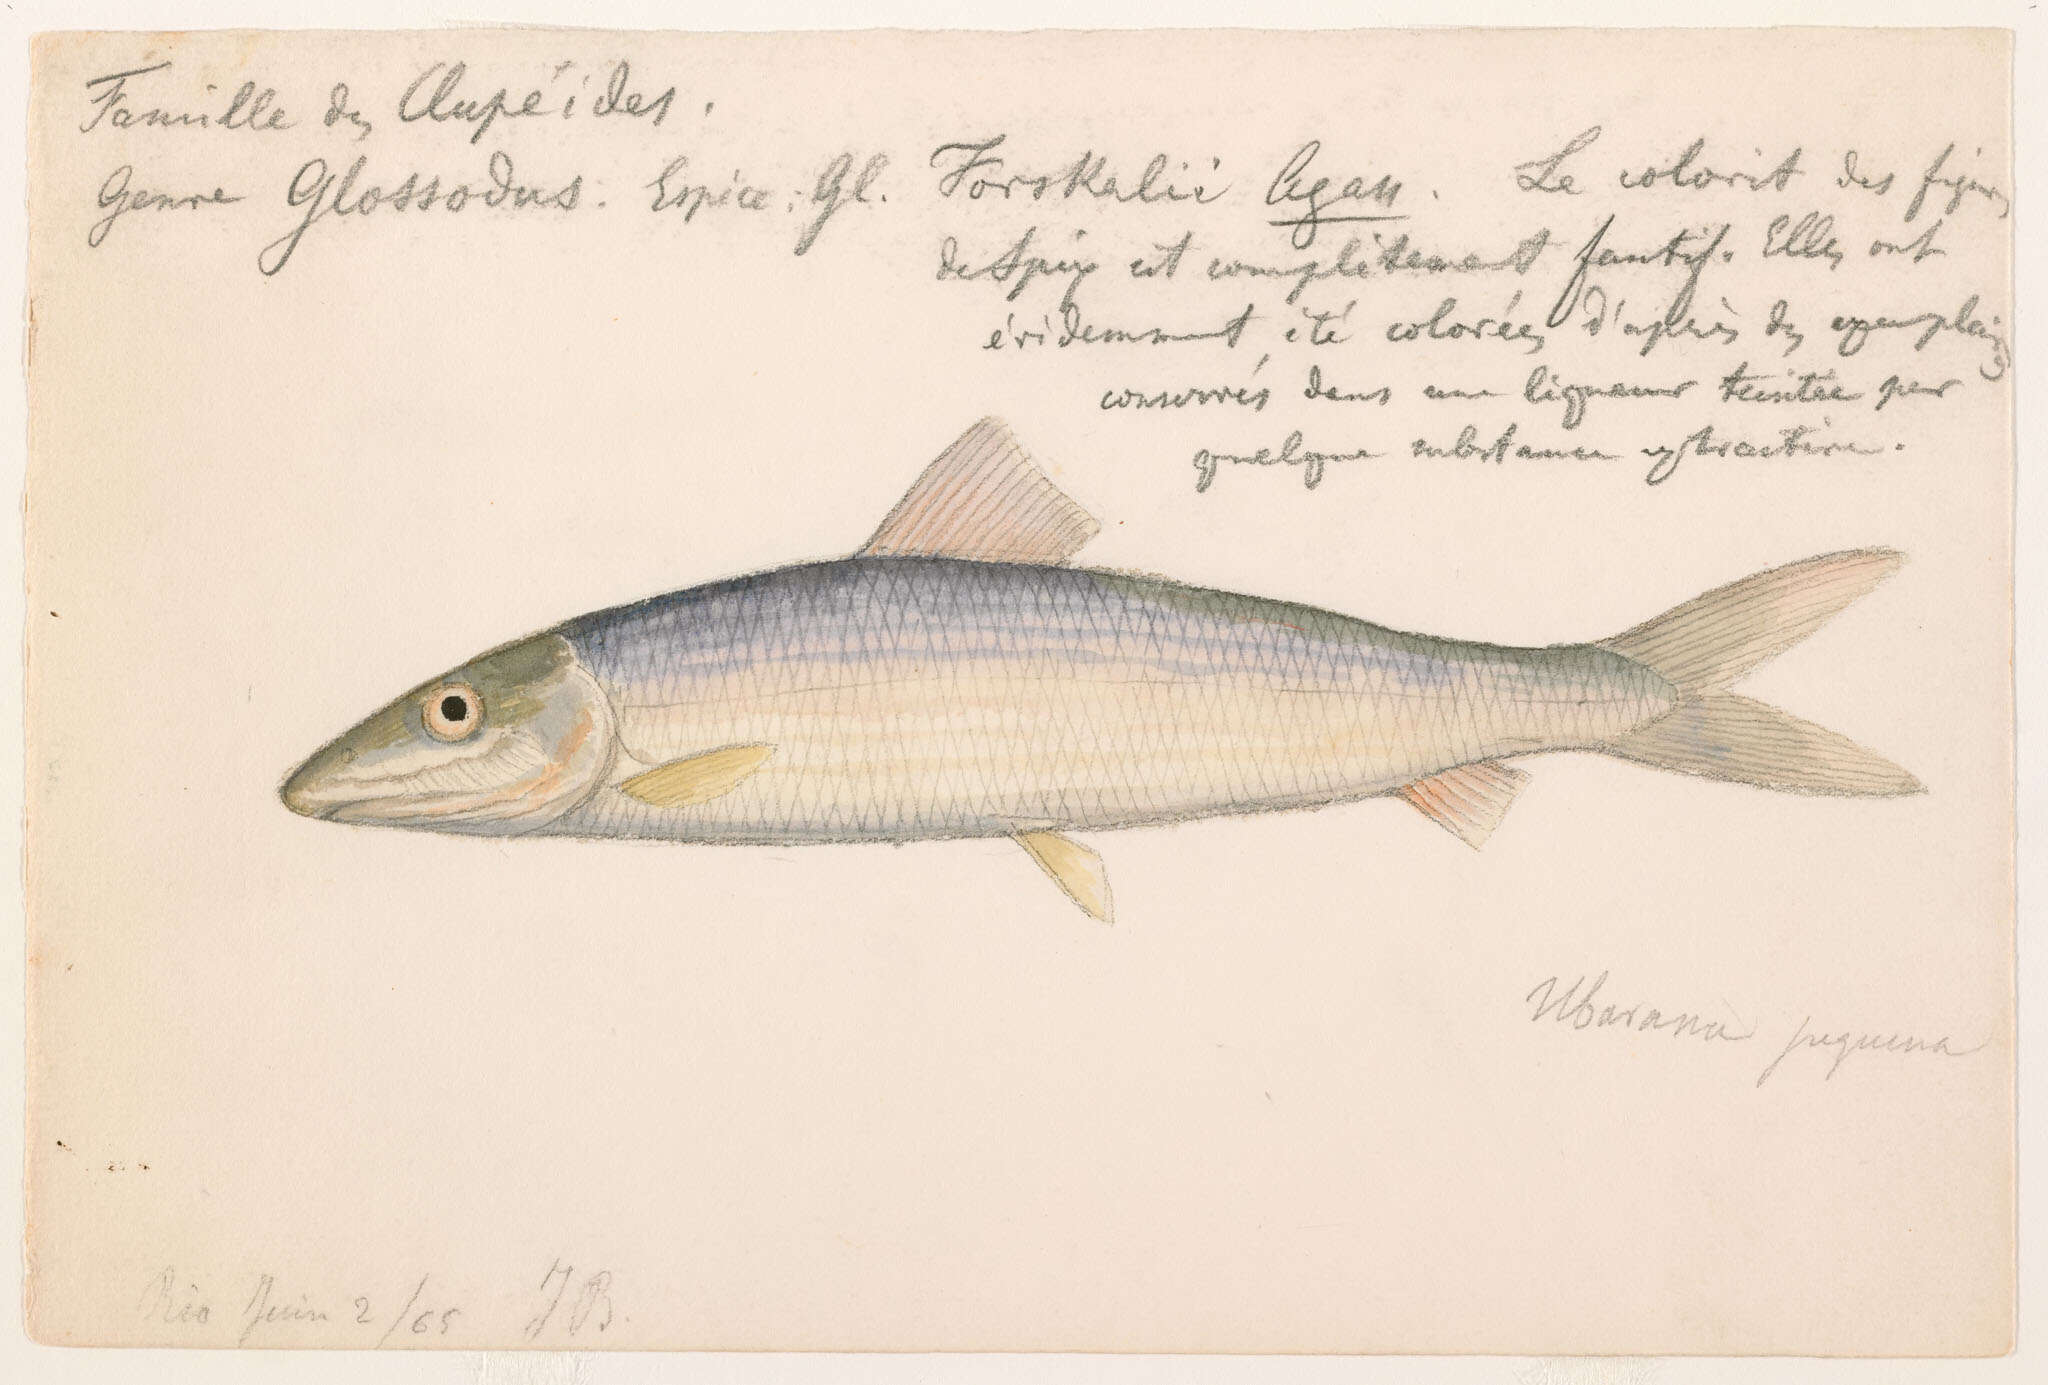 Famille des Clupéides.
Genre Glossodus. Espèce: Gl. Forskalii Agass. Le colorit des figures
de Spix est complètement fautif. Elles ont
évidemment été colorées d'après des exemplaires
conservés dans une liqueur teintée par
quelque substance extractive.
Ubarana pequena
Rio Juin 2/65 JB.